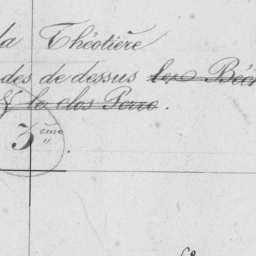 la Théotière
des de dessus les
& le clos Perre.
3ème